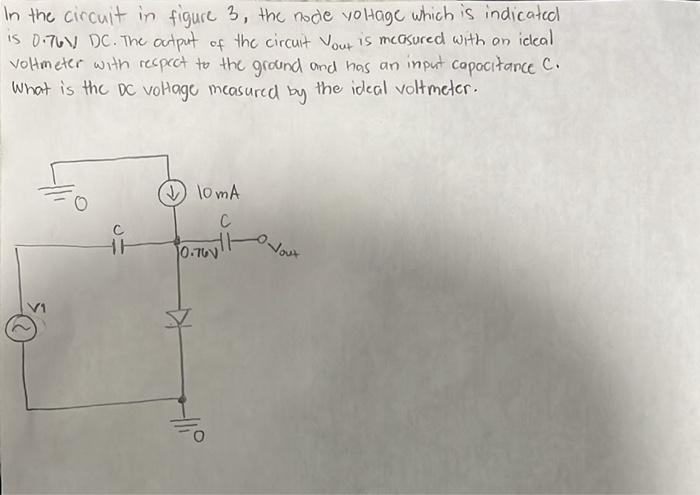 In the circuit in figure 3, the node voltage which is indicated
is 0.76V DC. The output of the circuit Vout is measured with an ideal
voltmeter with respect to the ground and has an input capacitance C.
What is the DC voltage measured by the ideal voltmeter.
10mA
0
C
C
0.76V
Vout
V1
0